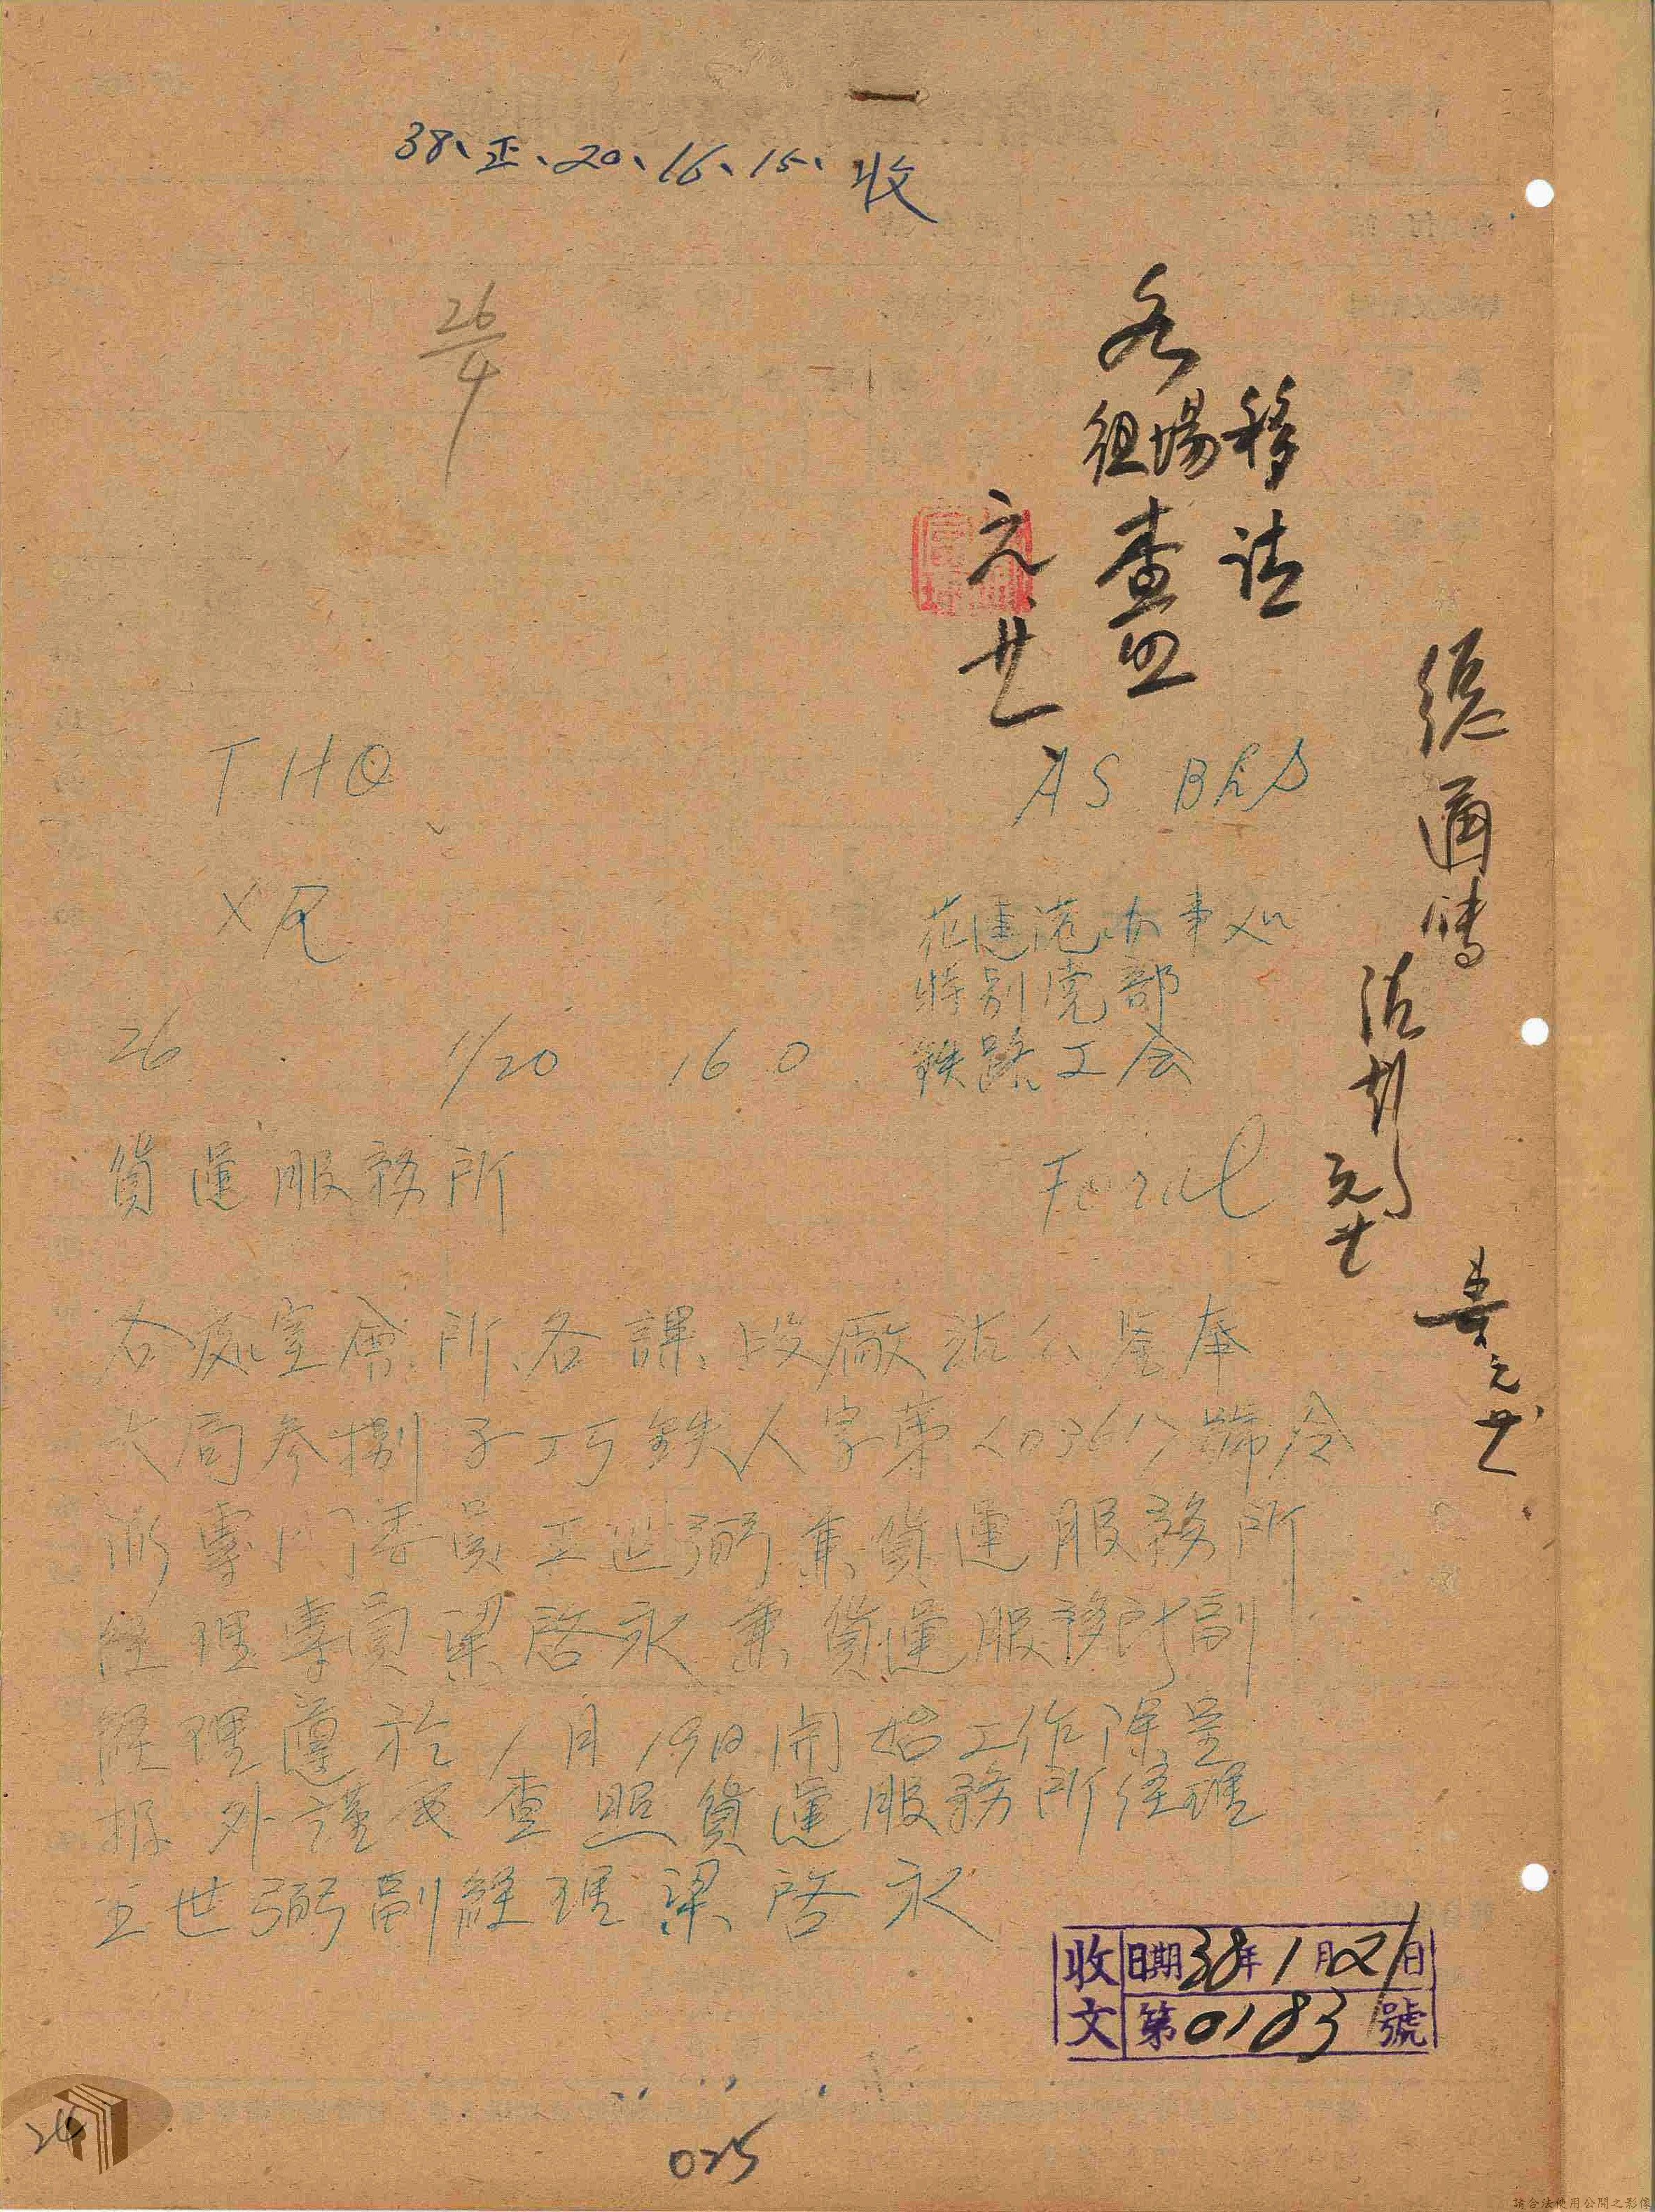 38、正、20、16、15、收
26/4
移請
各
組場
查照
元廿
THQ
AS BRS
X
花蓮港办事処
特別党部
鉄路工会
26 1/20 16 0
貨運服務所
各処室會、所、各課、段、廠、站公鑒奉
大局参捌子巧鉄人字第<0361>號令
派專門委員王世弼兼貨運服務所
經理專員梁啓永兼貨運服務所副
經理遵於1月19日開始工作除呈
報外謹電查照貨運服務所經理
王世弼副經理梁啓永
收文 日期38年1月21日
第0183號
025
24
請合法使用公開之影像